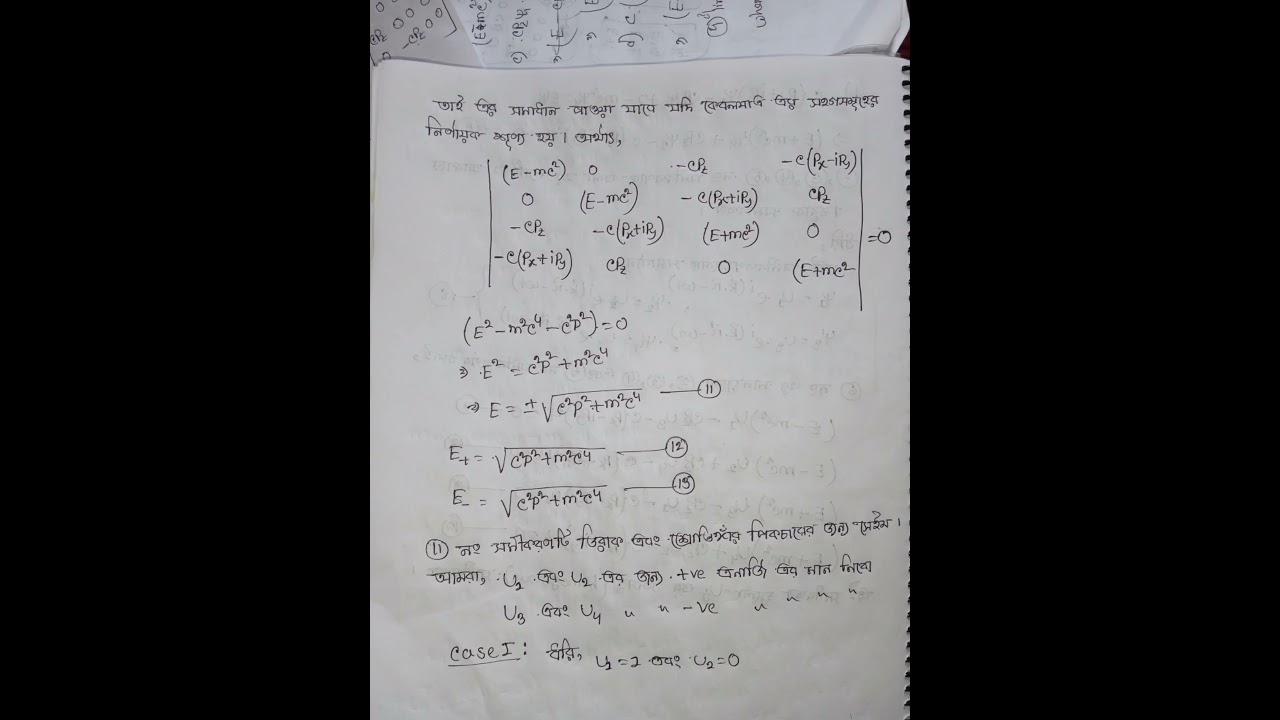 তাই এর সমাধান পাওয়া যাবে যদি কেবলমাত্র এর সহগসমূহের
নির্ণায়ক শূন্য হয়। অর্থাৎ,
(E-mc²) 0 -cPz -c(Px-iPy)
0 (E-mc²) -c(Px+iPy) cPz
-cPz -c(Px+iPy) (E+mc²) 0 =0
-c(Px+iPy) cPz 0 (E+mc²
(E²-m²c⁴-c²p²)=0
⇒ E² = c²p²+m²c⁴
⇒ E = ±√c²p²+m²c⁴ —— (11)
E₊ = √c²p²+m²c⁴ —— (12)
E₋ = √c²p²+m²c⁴ —— (13)
(11) নং সমীকরণটি ডিরাক এবং এর জন্য সেইম।
আমরা, U₁ এবং U₂ এর জন্য +ve এনার্জি এর মান নিবো
U₃ এবং U₄ " " -ve " " " "
Case I: ধরি, U₁=1 এবং U₂=0